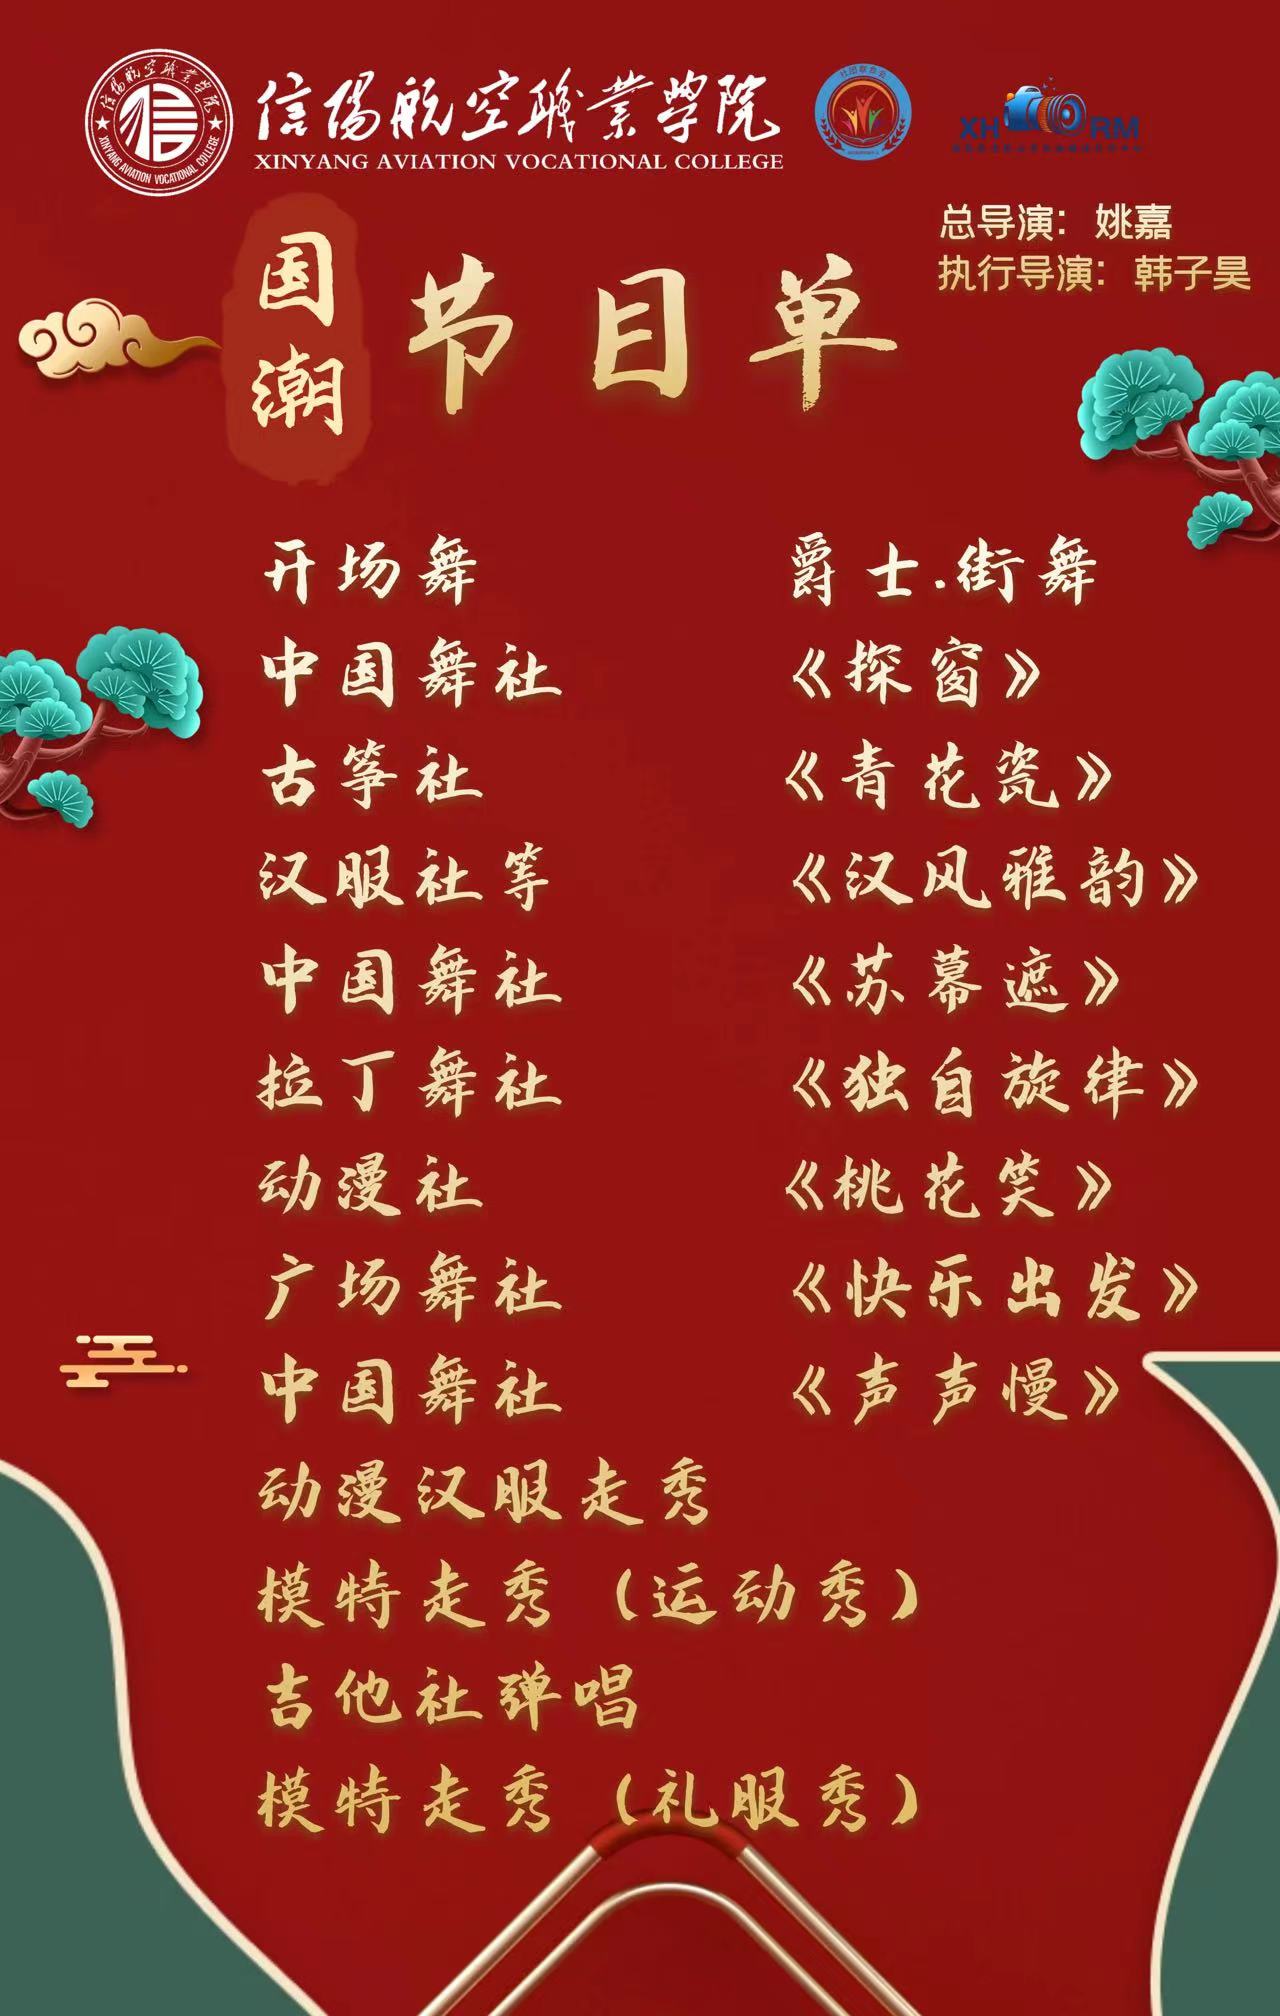 信陽航空職業學院
XINYANG AVIATION VOCATIONAL COLLEGE
信陽航空職業學院
信
XINYANG AVIATION VOCATIONAL COLLEGE
社团联合会
XH RM
总导演：姚嘉
执行导演：韩子昊
国潮
节目单
开场舞 爵士.街舞
中国舞社 《探窗》
古筝社 《青花瓷》
汉服社等 《汉风雅韵》
中国舞社 《苏幕遮》
拉丁舞社 《独自旋律》
动漫社 《桃花笑》
广场舞社 《快乐出发》
中国舞社 《声声慢》
动漫汉服走秀
模特走秀（运动秀）
吉他社弹唱
模特走秀（礼服秀）